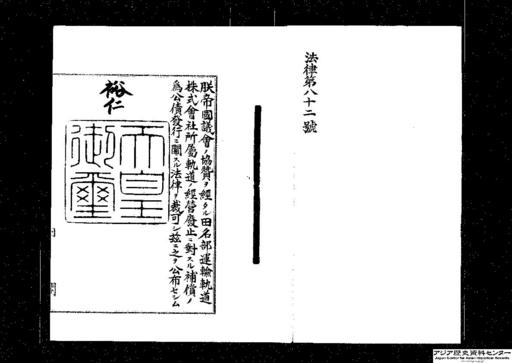 法律第八十二號
朕帝國議會ノ協賛ヲ經タル田名部運輸軌道
株式會社所屬軌道ノ經營廢止ニ對スル補償ノ
爲公債發行ニ關スル法律ヲ裁可シ玆ニ之ヲ公布セシム
裕仁
天皇
御璽
内閣
アジア歴史資料センター
Japan Center for Asian Historical Records